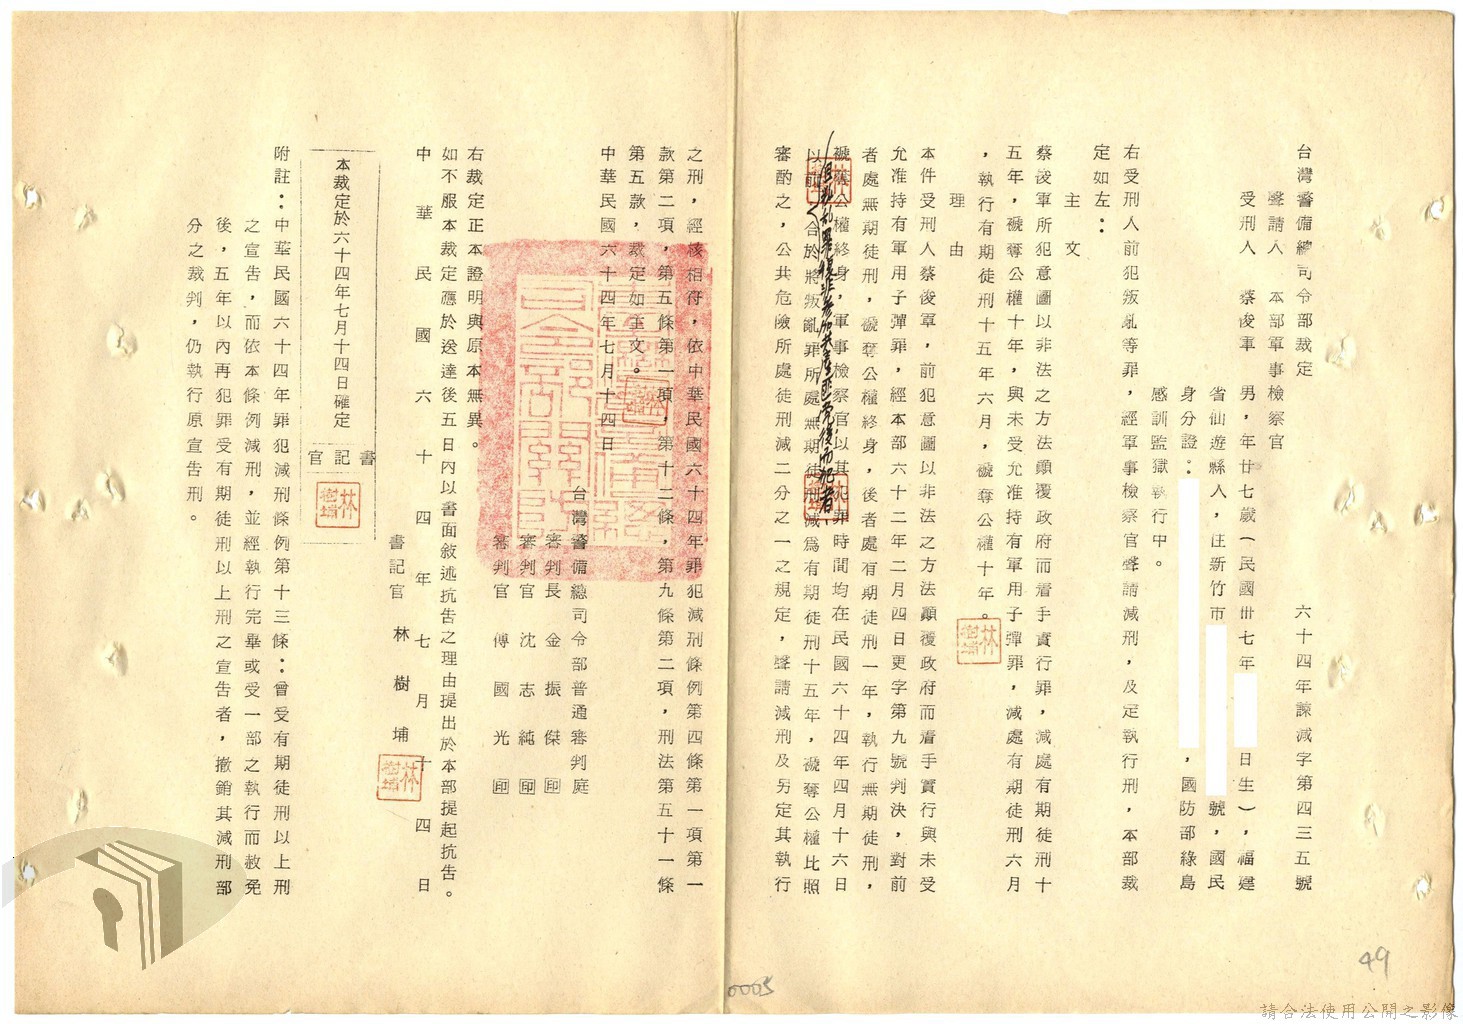 台灣警備總司令部裁定
六十四年諫減字第四三五號
聲請人　本部軍事檢察官
受刑人　蔡俊軍　男，年廿七歲（民國卅七年　日生），福建
省仙遊縣人，住新竹市　號，國民
身分證：　，國防部綠島
感訓監獄執行中。
右受刑人前犯叛亂等罪，經軍事檢察官聲請減刑，及定執行刑，本部裁
定如左：
主　文
蔡俊軍所犯意圖以非法之方法顛覆政府而着手實行罪，減處有期徒刑十
五年，褫奪公權十年，與未受允准持有軍用子彈罪，減處有期徒刑六月
，執行有期徒刑十五年六月，褫奪公權十年。
林樹埔
理　由
本件受刑人蔡俊軍，前犯意圖以非法之方法顛覆政府而着手實行與未受
允准持有軍用子彈罪，經本部六十二年二月四日更字第九號判決，對前
者處無期徒刑，褫奪公權終身，後者處有期徒刑一年，執行無期徒刑，
褫奪公權終身，軍事檢察官以其犯罪時間均在民國六十四年四月十六日
以前，合於將叛亂罪所處無期徒刑減為有期徒刑十五年，褫奪公權比照
但叛亂罪復非參加共產匪黨後而犯者
審酌之，公共危險所處徒刑減二分之一之規定，聲請減刑及另定其執行
之刑，經核相符，依中華民國六十四年罪犯減刑條例第四條第一項第一
款第二項，第五條第一項，第十二條，第九條第二項，刑法第五十一條
第五款，裁定如主文。
中華民國六十四年七月十四日
台灣警備總司令部普通審判庭
審判長　金振傑　印
審判官　沈志純　印
審判官　傅國光　印
右裁定正本證明與原本無異。
如不服本裁定應於送達後五日內以書面敘述抗告之理由提出於本部提起抗告。
中華民國六十四年七月十四日
書記官　林樹埔
林樹埔
本裁定於六十四年七月十四日確定
書記官
林樹埔
附註：中華民國六十四年罪犯減刑條例第十三條：曾受有期徒刑以上刑
之宣告，而依本條例減刑，並經執行完畢或受一部之執行而赦免
後，五年以內再犯罪受有期徒刑以上刑之宣告者，撤銷其減刑部
分之裁判，仍執行原宣告刑。
49
0005
請合法使用公開之影像